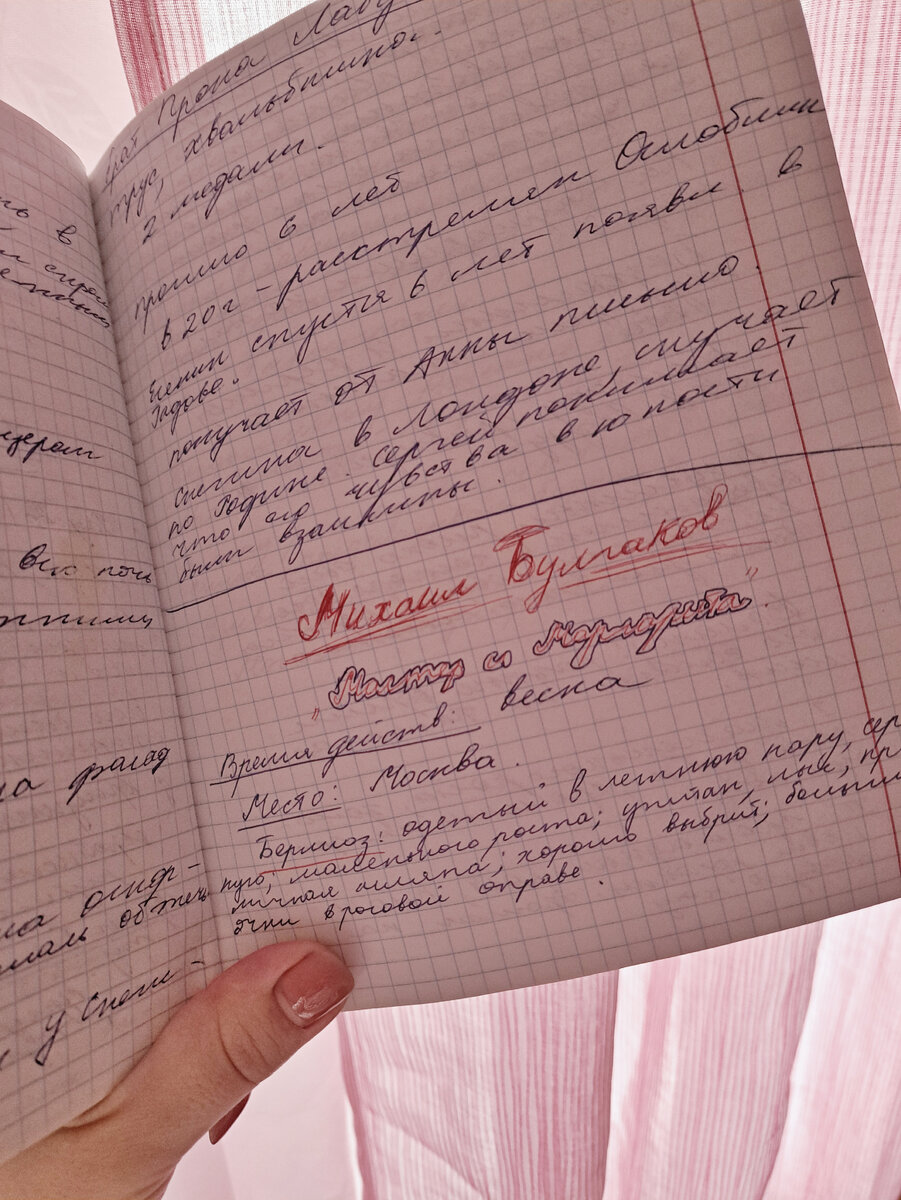 ь в
всю ночь
на фасад
маль об жечь
у Снеги-
брат Прона Лабу
трус, хвальбишка.
2 медали.
прошло 6 лет
в 20 г - расстрелян Оглоблин
Есенин спустя 6 лет появл. в
Радове.
получает от Анны письмо.
Снегина в Лондоне, скучает
по Родине. Сергей понимает
что его чувства в юности
были взаимны.
Михаил Булгаков
"Мастер и Маргарита".
Время действ: весна
Место: Москва.
Берлиоз: одетый в летнюю пару, сер
ную; маленького роста; упитан, лыс, пр
личная шляпа; хорошо выбрит; больши
очки в роговой оправе.